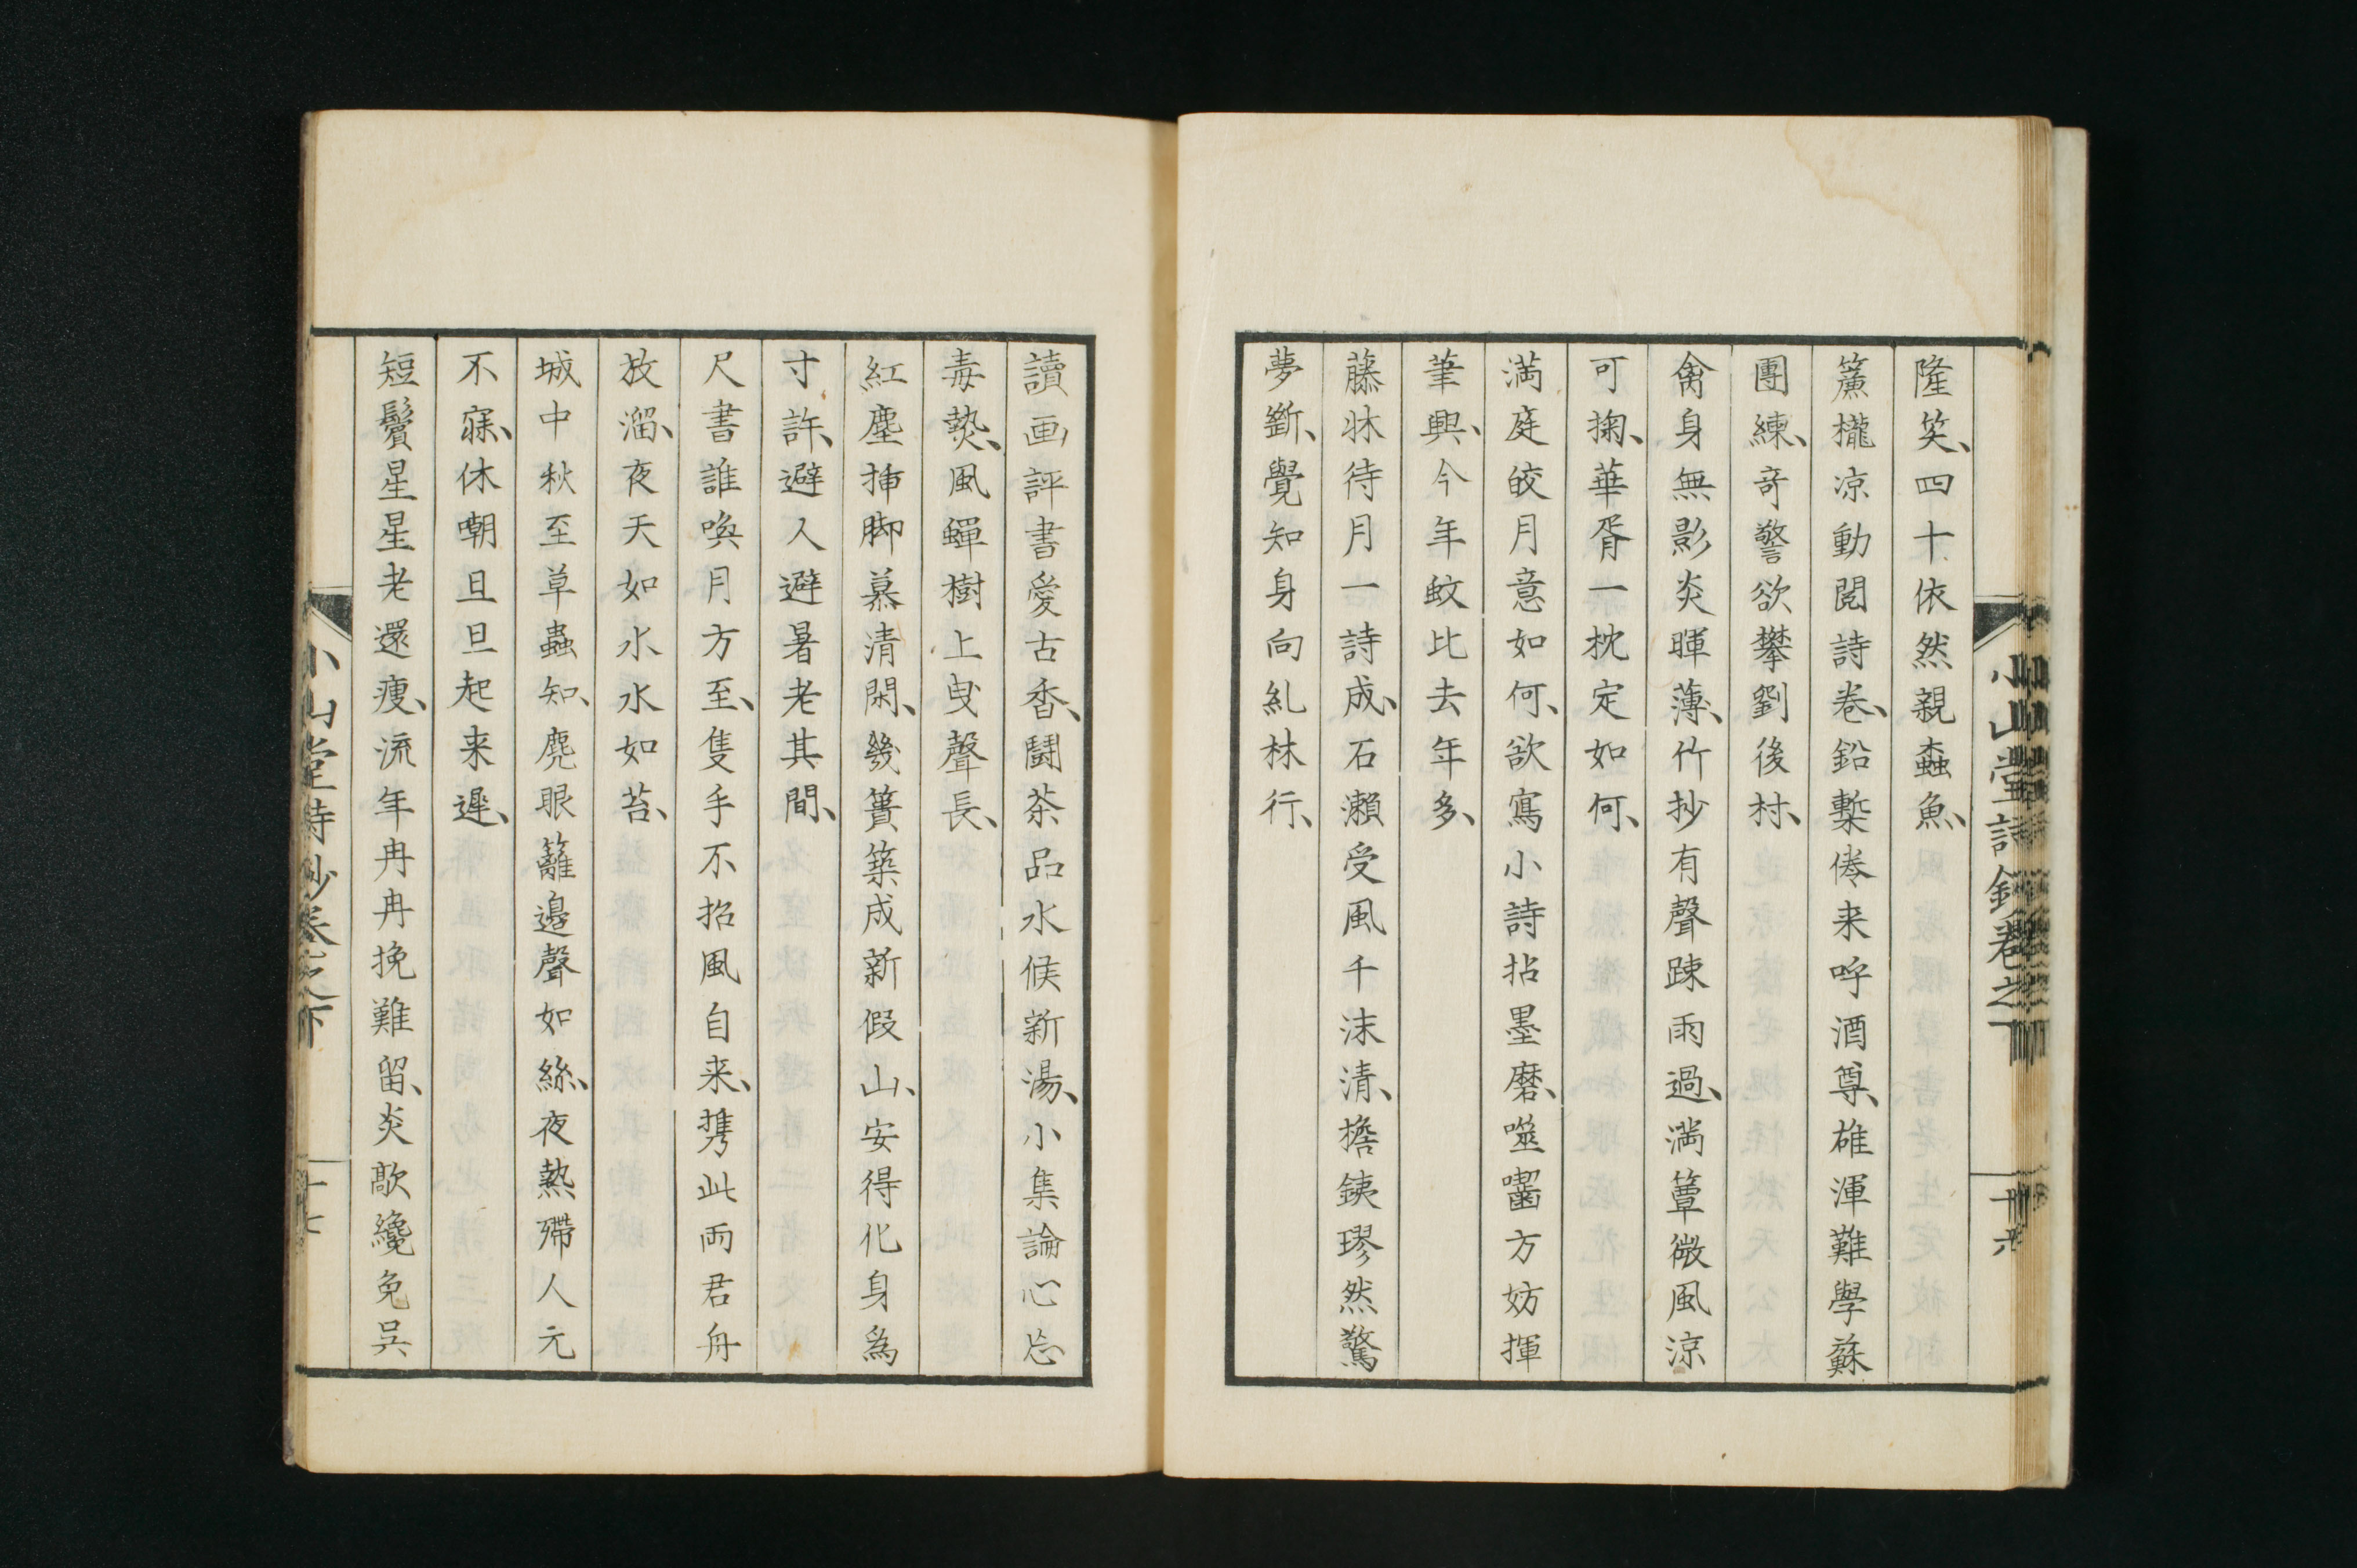 隆笑、四十依然親蟲魚、
簾櫳凉動閲詩卷、鉛槧倦来呼酒尊、雄渾難學蘇
團練、奇警欲攀劉後村、
禽身無影炎暉薄、竹抄有聲踈雨過、満簟微風涼
可掬、華胥一枕定如何、
満庭皎月意如何、欲寫小詩拈墨磨、噬囓方妨揮
筆興、今年蚊比去年多、
藤牀待月一詩成、石瀬受風千沫清、擔鐵璆然驚
夢斷、覺知身向糺林行、
小山堂詩鈔卷之下
十六
讀画評書愛古香、鬪茶品水候新湯、小集論心忘
毒㷫、風蟬樹上曳聲長、
紅塵揷脚慕清閑、幾簣築成新假山、安得化身爲
寸許、避人避暑老其間、
尺書誰喚月方至、隻手不招風自来、携此両君舟
放溜、夜天如水水如苔、
城中秋至草蟲知、麂眼籬邉聲如絲、夜熱殢人元
不寐、休嘲旦旦起来遲、
短鬢星星老還瘦、流年冉冉挽難留、炎歊纔免吳
小山堂詩鈔卷之下
十七